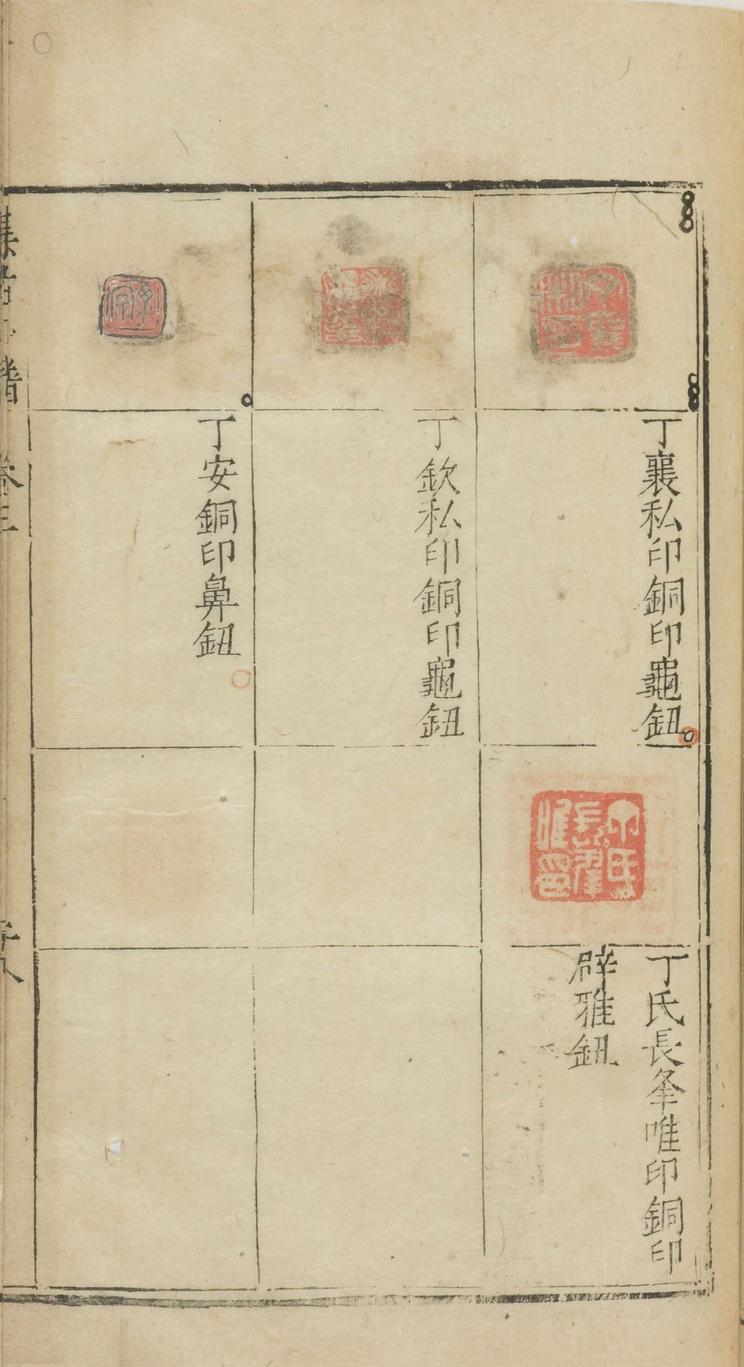 丁襄私印銅印龜鈕
丁欽私印銅印龜鈕
丁安銅印鼻鈕
丁氏長夆唯印銅印
辟雅鈕